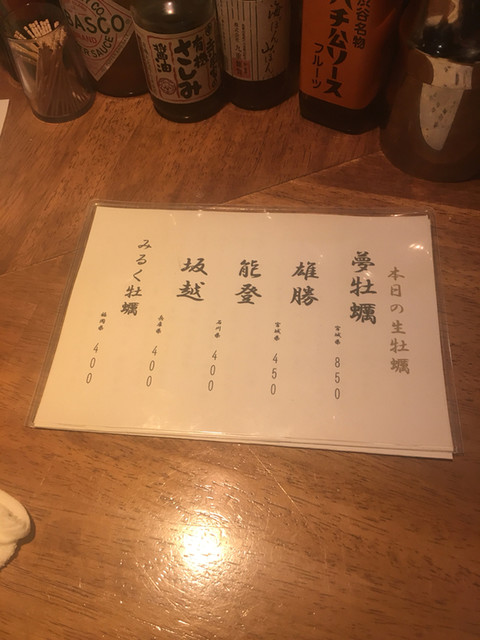 本日の生牡蠣
夢牡蠣 宮城県 850
雄勝 宮城県 450
能登 石川県 400
坂越 兵庫県 400
みるく牡蠣 福岡県 400
TABASCO
有機
さしみ
醤油
渋谷名物
ハチ公ソース
フルーツ